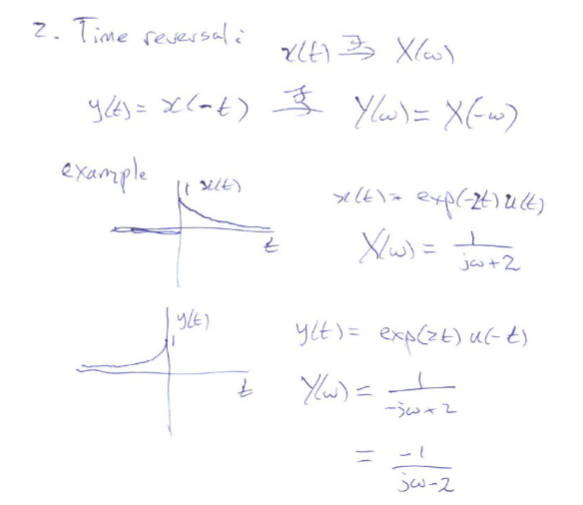 2. Time reversal:
x(t) ℱ→ X(ω)
y(t) = x(-t) ℱ→ Y(ω) = X(-ω)
example
1 x(t)
t
x(t) = exp(-2t) u(t)
X(ω) = 1/(jω+2)
y(t)
1
t
y(t) = exp(2t) u(-t)
Y(ω) = 1/(-jω+2)
= -1/(jω-2)